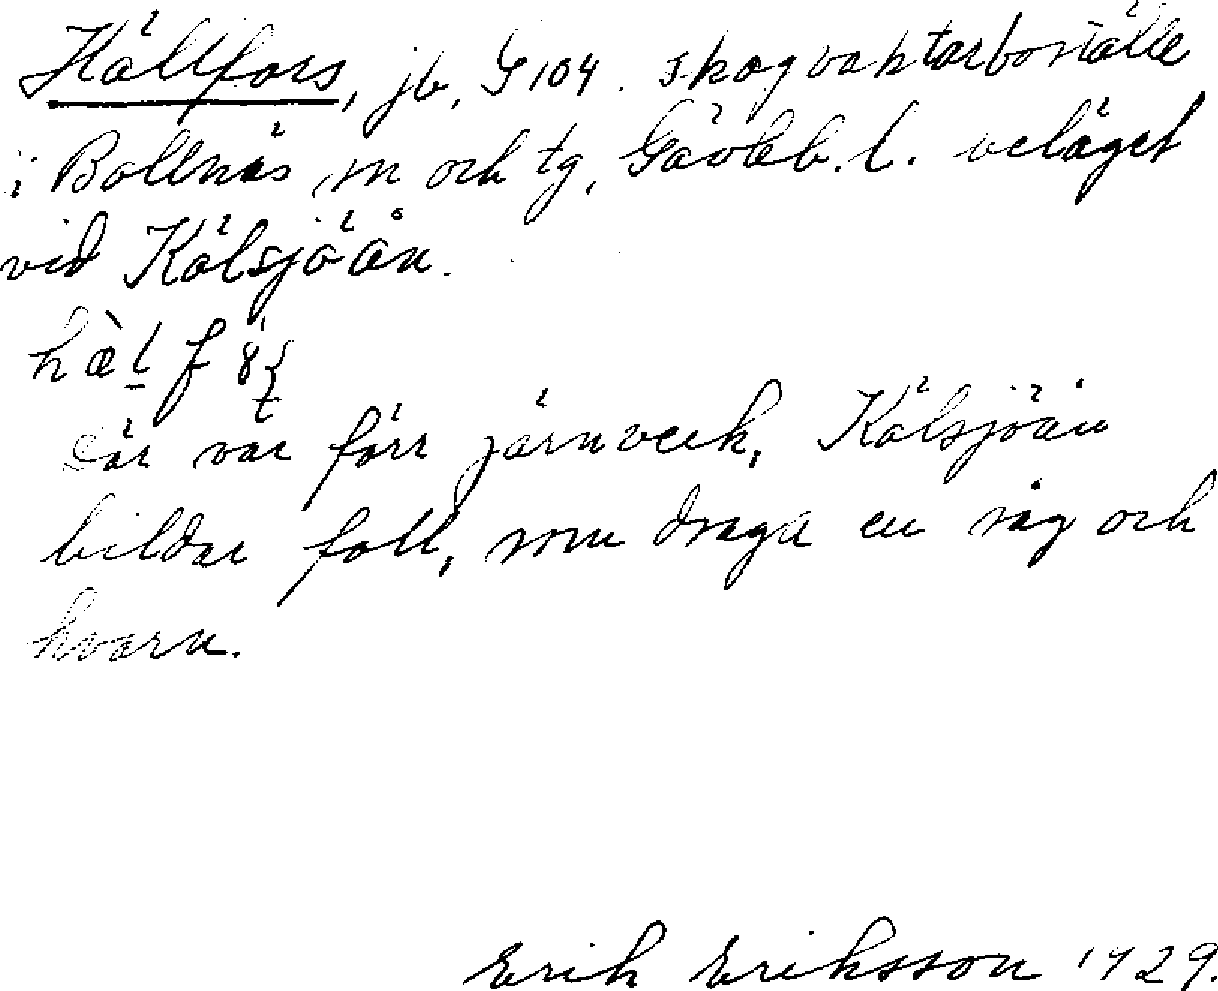 Hällfors, jb. G 104. skogvaktarboställe
i Bollnäs sn och tg, Gävleb. l. beläget
vid Kälsjöån.
Där var förr järnverk, Kälsjöån
bildar fall, som draga en såg och
kvarn.
Erik Eriksson 1929.